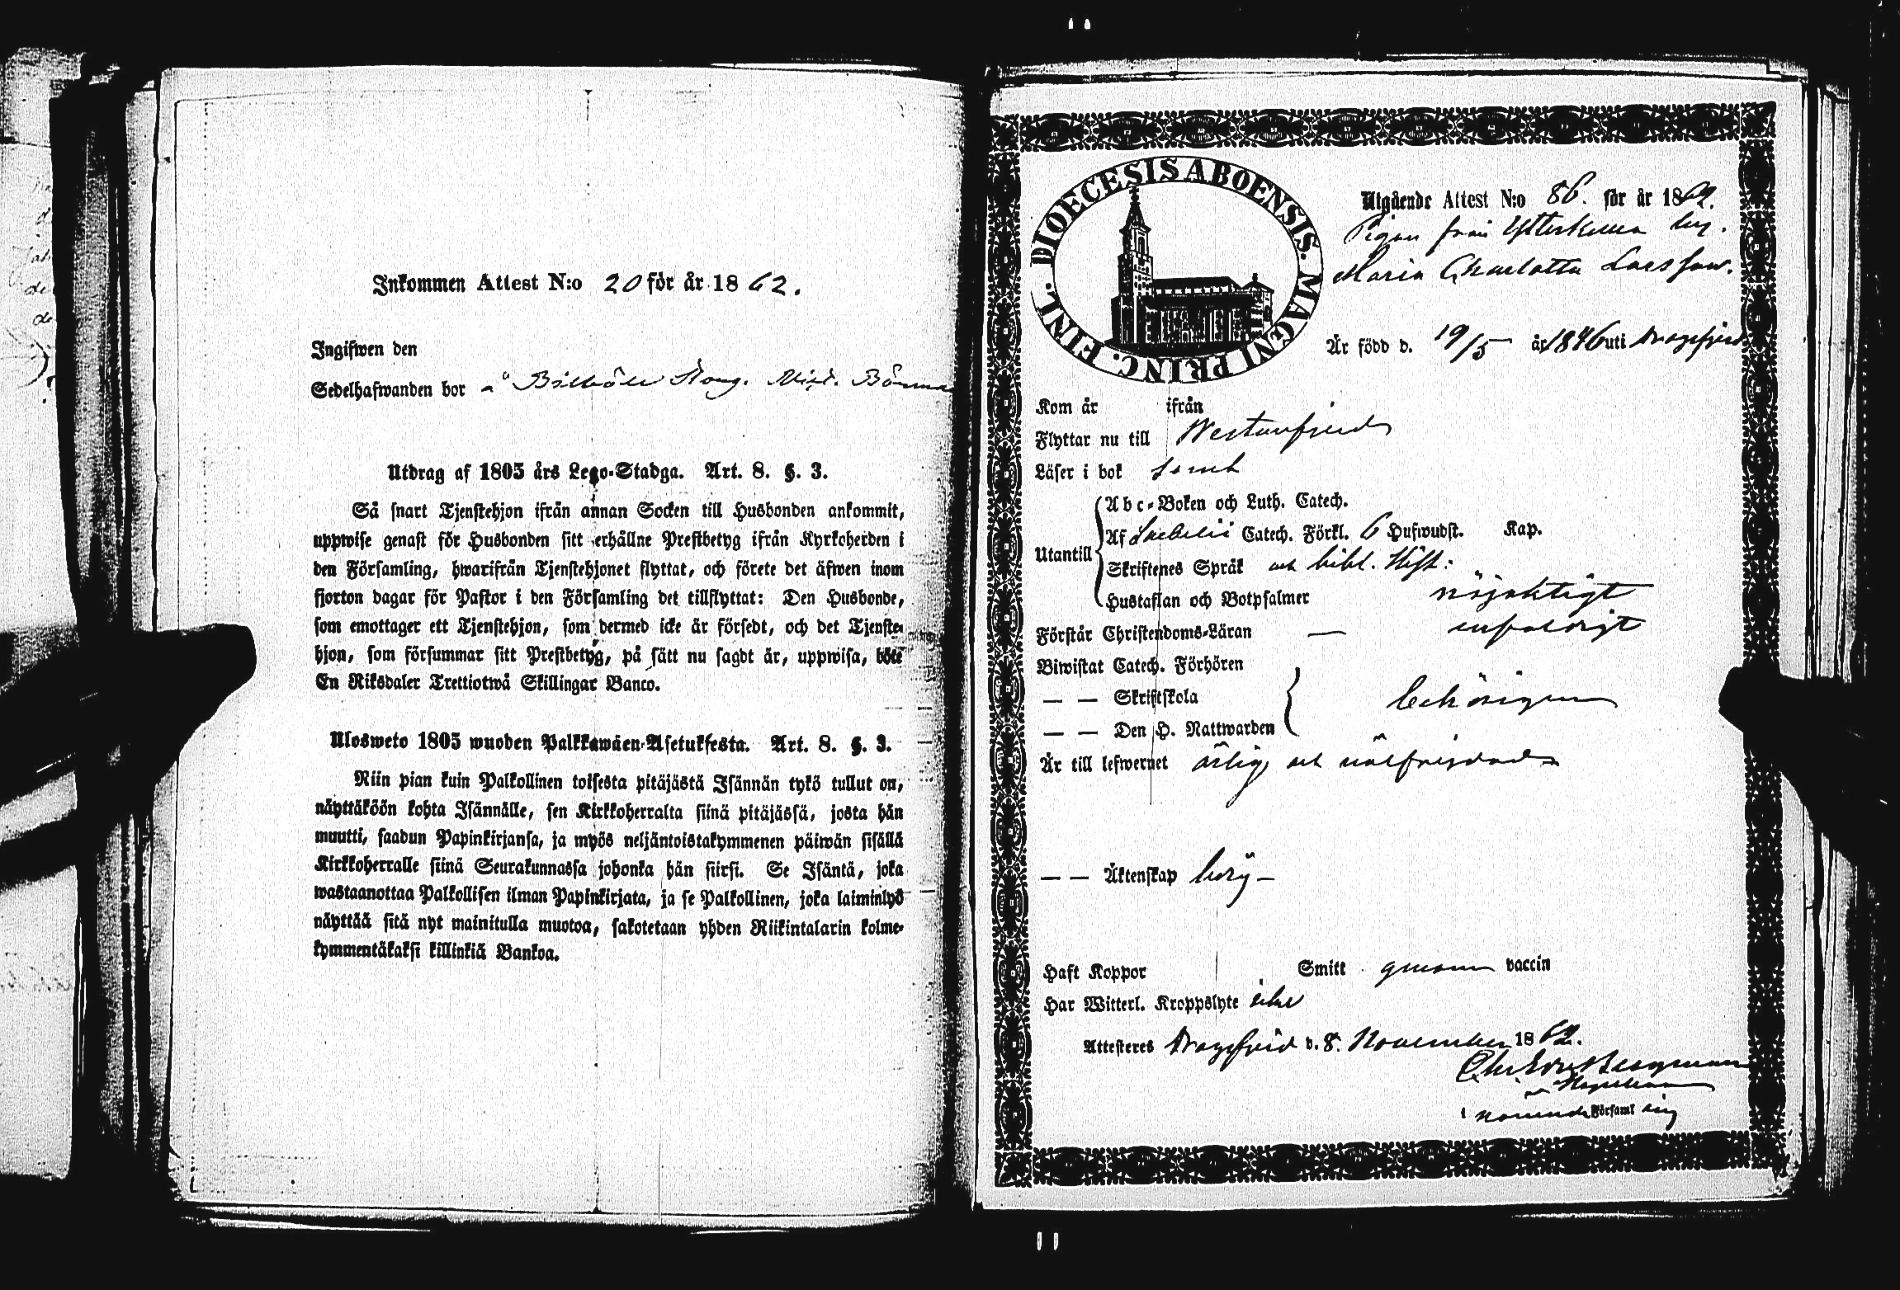 Inkommen Attest N:o 20 för år 1862.
Ingifwen den
Sedelhafwanden bor å
Utdrag af 1805 års Lego-Stadga. Art. 8. §. 3.
Så snart Tjenstehjon ifrån annan Socken till Husbonden ankommit,
uppwise genast för Husbonden sitt erhållne Prestbetyg ifrån Kyrkoherden i
den Församling, hwarifrån Tjenstehjonet flyttat, och förete det äfwen inom
fjorton dagar för Pastor i den Församling det tillflyttat: Den Husbonde,
som emottager ett Tjenstehjon, som dermed icke är försedt, och det Tjenste-
hjon, som försummar sitt Prestbetyg, på sätt nu sagdt är, uppwisa, böte
En Riksdaler Trettiotwå Skillingar Banco.
Ulosweto 1805 wuoden Palkkawäen-Asetuksesta. Art. 8. §. 3.
Niin pian kuin Palkollinen toisesta pitäjästä Isännän tykö tullut on,
näyttäköön kohta Isännälle, sen Kirkkoherralta siinä pitäjässä, josta hän
muutti, saadun Papinkirjansa, ja myös neljäntoistakymmenen päiwän sisällä
Kirkkoherralle siinä Seurakunnassa johonka hän siirsi. Se Isäntä, joka
wastaanottaa Palkollisen ilman Papinkirjata, ja se Palkollinen, joka laiminlyö
näyttää sitä nyt mainitulla muotoa, sakotetaan yhden Riikintalarin kolme-
kymmentäkaksi killinkiä Bankoa.
DIOECESIS ABOENSIS. MAGNI PRINC. FINL.
Utgående Attest N:o 86. för år 1862.
Pigan från Ytterkulla by.
Maria Charlotta Larsson.
Är född d. 19/5 år 1846 uti Dragsfjerd
Kom år ifrån
Flyttar nu till Westanfjerd
Läser i bok
Utantill
Abc-Boken och Luth. Catech.
Af Catech. Förkl. 6 Hufwudst. Kap.
Skriftenes Språk och bibl. Hist:
Hustaflan och Botpsalmer nöjaktigt
Förstår Christendoms-Läran —
Biwistat Catech. Förhören
— — Skriftskola behörigen
— — Den H. Nattwarden
Är till lefwernet ärlig och wälfrejdad
— — Äktenskap ledig —
Haft Koppor Smitt genom vaccin
Har Witterl. Kroppslyte icke
Attesteres Dragsfjerd d. 8. November 1862.
Bergman
Kapellan
i Församl